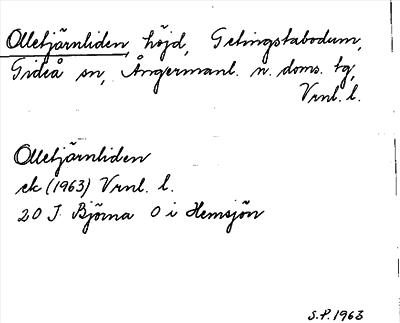 Olletjärnliden, höjd, Getingstabodum,
Gideå sn, Ångermanl. n. doms. tg,
Vrnl. l.
Olletjärnliden
ek (1963) Vrnl. l.
20 J Björna O i Hemsjön
S.P. 1963